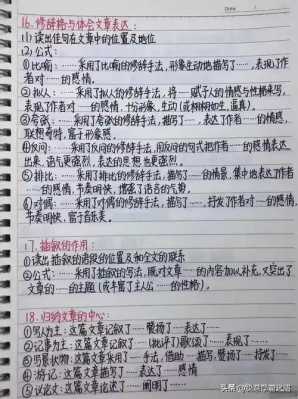 Date
16. 修辞格与体会文章表达:
(1) 读出佳句在文章中的位置及地位
(2) 公式:
①比喻: ……采用了比喻的修辞手法, 形象生动地描写了……, 表现了作
者对……的感情。
②拟人: ……采用了拟人的修辞手法, 将……赋予人的情感与性格来写,
表现了作者对……的感情, 十分形象、生动
③夸张: ……采用了夸张的修辞手法, 描写了……, 表达了作者……的感情,
联想奇特, 富于形象感。
④反问: ……采用了反问的修辞手法, 用反问的句式把作者……的感情表达
出来, 语气更强烈, 表达的思想也更强烈。
⑤排比: ……采用了排比的修辞手法, 描写了……的情景, 集中地表达了作者
……的感情, 节奏明快, 增强了语言的气势。
⑥对偶: ……采用了对偶的修辞手法, 描写了……, 抒发了作者对……的感情,
节奏明快, 富于音乐美。
17. 插叙的作用:
①读出插叙的语段的位置及和全文的联系
②公式: ……采用了插叙的写法, 既对文章……的内容加以补充, 又突出了
文章的……的主题 (或丰富了主人公……的性格)。
18. 归纳文章的中心:
①写人为主: 这篇文章记叙了……赞扬了……表达了……
②记事为主: 这篇文章记叙了……(批评了)歌颂了……表现了……
③写景状物: 这篇文章采用了……手法, 借助……描写, 赞扬了……抒发了……
④游记: 这篇文章描写了……表达了……感情
⑤议论文: 这篇文章论述了……阐明了……